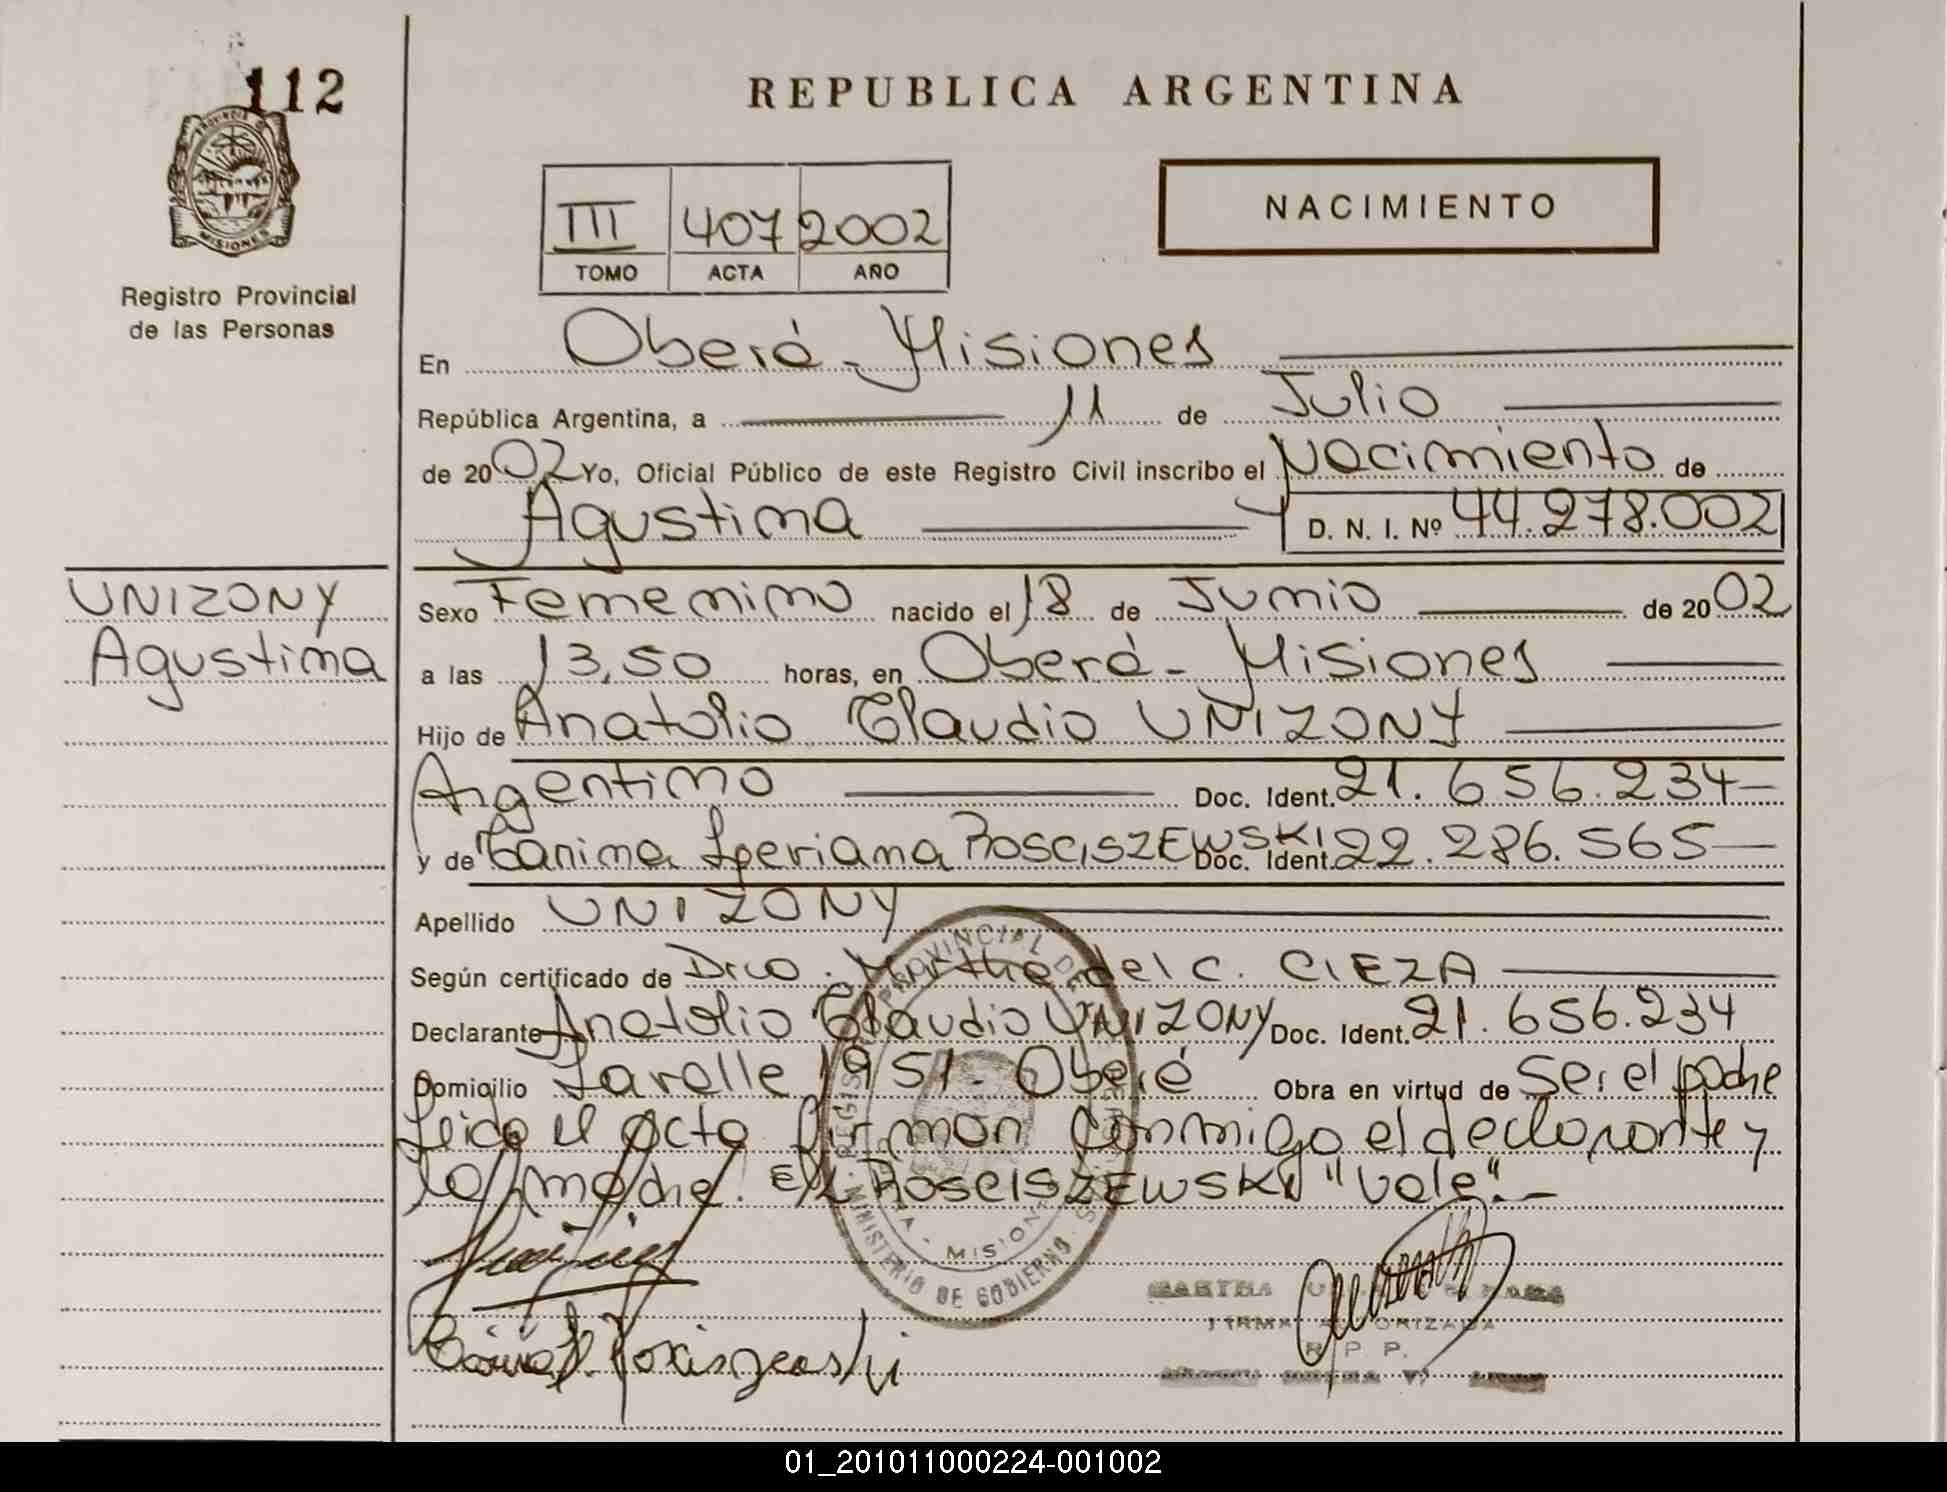 112
REPUBLICA ARGENTINA
PROVINCIA D MISIONES
Registro Provincial
de las Personas
III 407 2002
TOMO ACTA AÑO
NACIMIENTO
En Oberá - Misiones
República Argentina, a 11 de Julio
de 2002 Yo, Oficial Público de este Registro Civil inscribo el Nacimiento de
Agustina D. N. I. Nº 44.278.002
UNIZONY
Agustina
Sexo Femenino nacido el 18 de Junio de 2002
a las 13,50 horas, en Oberá - Misiones
Hijo de Anatolio Claudio UNIZONY
Argentino Doc. Ident. 21.656.234
y de ROSCISZEWSKI Doc. Ident. 22.286.565
Apellido UNIZONY
Según certificado de Dra. Martha del C. CIEZA
Declarante Anatolio Claudio UNIZONY Doc. Ident. 21.656.234
Domicilio 1951 - Oberá Obra en virtud de Ser el padre
Leida el acta firman conmigo el declarante y
la madre. ROSCISZEWSKI "Vale".
REGISTRO PROVINCIAL DE
MISIONES
MINISTERIO DE GOBIERNO
MARTHA
FIRMA AUTORIZADA
R. P. P.
01_201011000224-001002